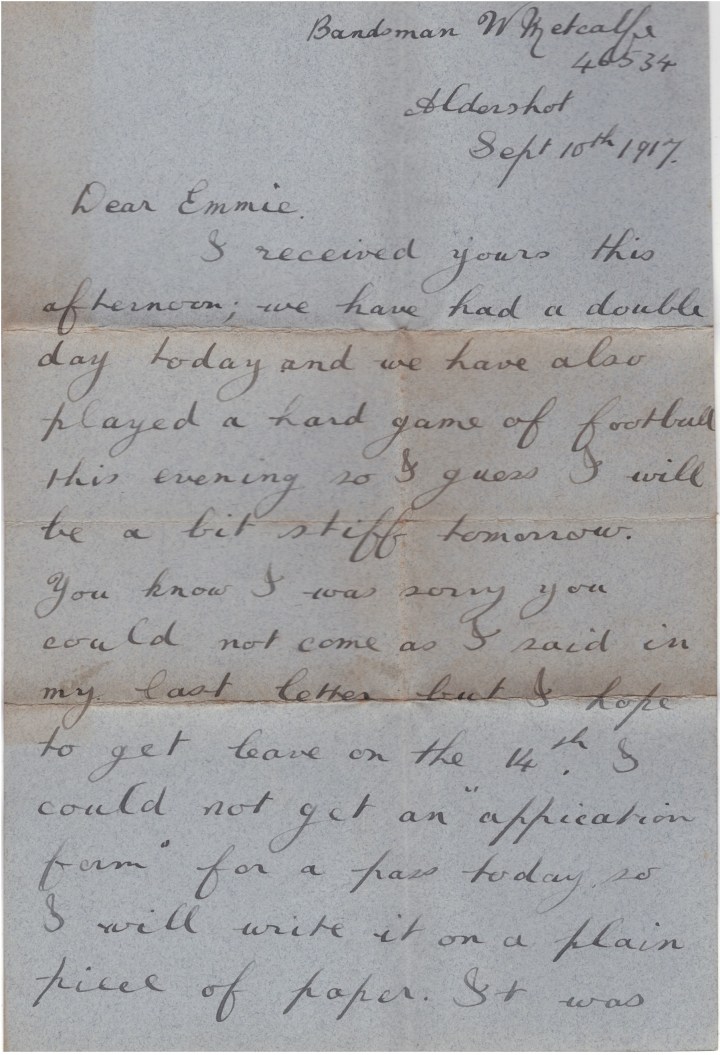 Bandsman W Metcalfe
46534
Aldershot
Sept 10th 1917.
Dear Emmie.
I received yours this
afternoon; we have had a double
day today and we have also
played a hard game of football
this evening so I guess I will
be a bit stiff tomorrow.
You know I was sorry you
could not come as I said in
my last letter but I hope
to get leave on the 14th. I
could not get an "appication
form" for a pass today so
I will write it on a plain
piece of paper. It was